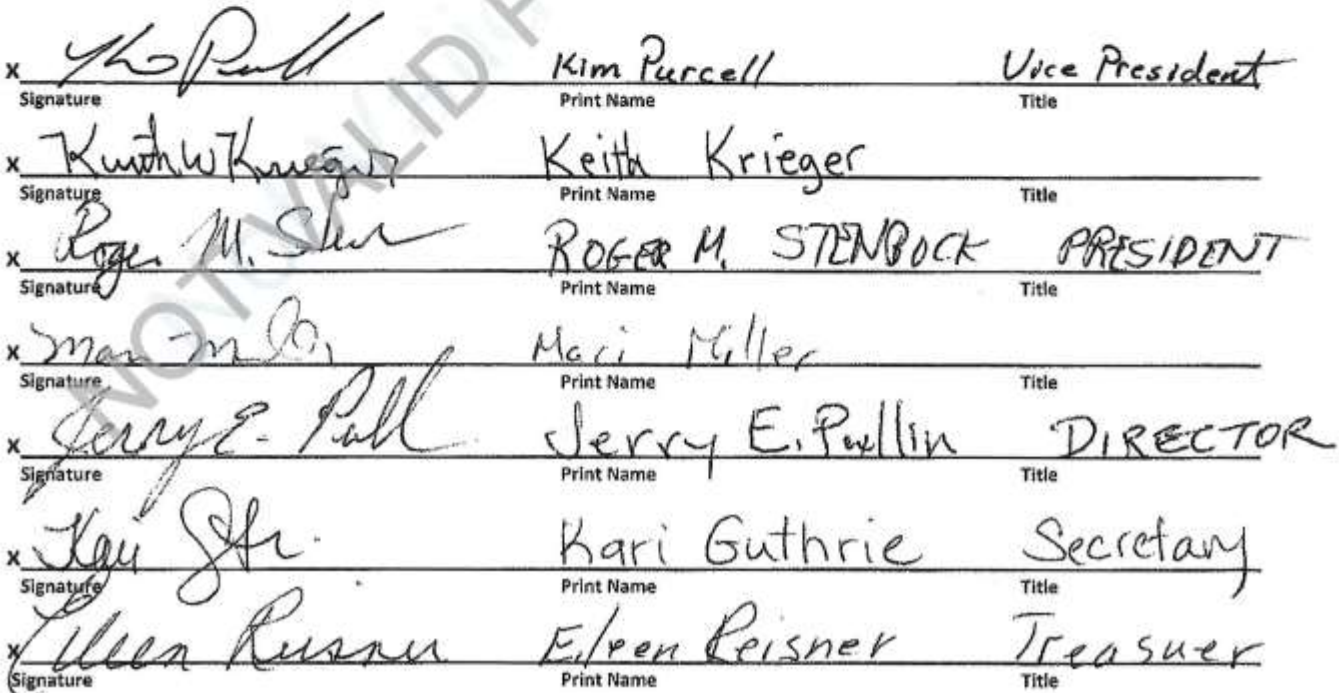 x Kim Purcell Kim Purcell Vice President
Signature Print Name Title
x Keith W Krieger Keith Krieger
Signature Print Name Title
x Roger M. Sten ROGER M. STENBOCK PRESIDENT
Signature Print Name Title
x Mari Miller Mari Miller
Signature Print Name Title
x Jerry E. Pull Jerry E. Pullin DIRECTOR
Signature Print Name Title
x Kari Kari Guthrie Secretary
Signature Print Name Title
x Eileen Reisner Eileen Reisner Treasuer
Signature Print Name Title
NOT VALID